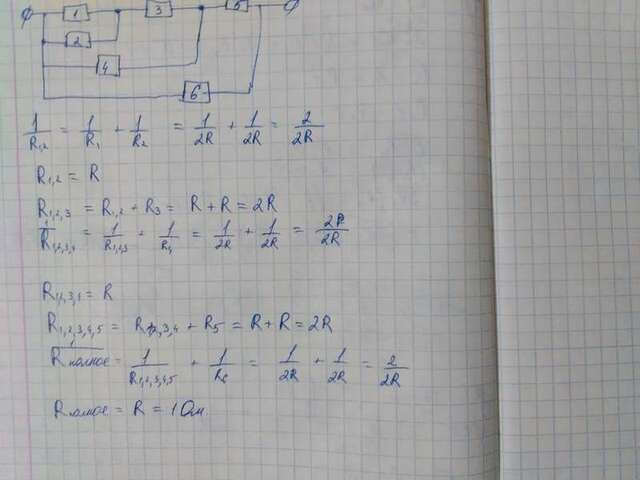 1 3 5
2
4
6
1/R1,2 = 1/R1 + 1/R2 = 1/2R + 1/2R = 2/2R
R1,2 = R
R1,2,3 = R1,2 + R3 = R + R = 2R
1/R1,2,3,4 = 1/R1,2,3 + 1/R4 = 1/2R + 1/2R = 2R/2R
R1,2,3,4 = R
R1,2,3,4,5 = R1,2,3,4 + R5 = R + R = 2R
1/Rполное = 1/R1,2,3,4,5 + 1/R6 = 1/2R + 1/2R = 2/2R
Rполное = R = 1 Ом.